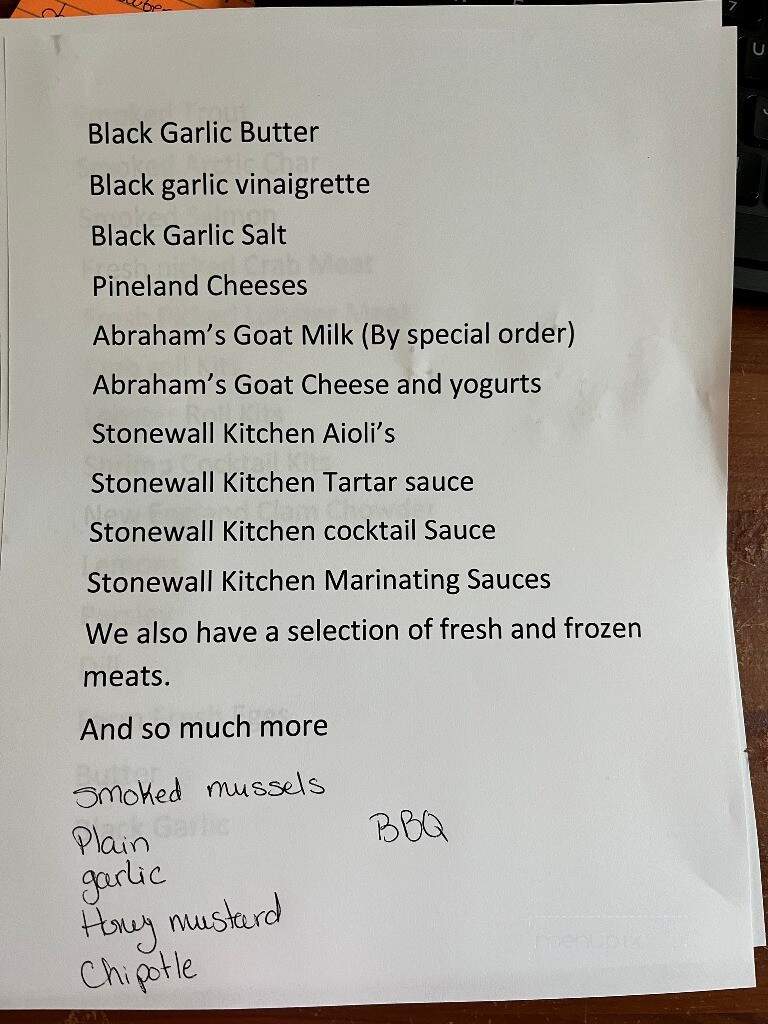 Black Garlic Butter
Black garlic vinaigrette
Black Garlic Salt
Pineland Cheeses
Abraham's Goat Milk (By special order)
Abraham's Goat Cheese and yogurts
Stonewall Kitchen Aioli's
Stonewall Kitchen Tartar sauce
Stonewall Kitchen cocktail Sauce
Stonewall Kitchen Marinating Sauces
We also have a selection of fresh and frozen
meats.
And so much more
smoked mussels
Plain BBQ
garlic
Honey mustard
Chipotle
menupix